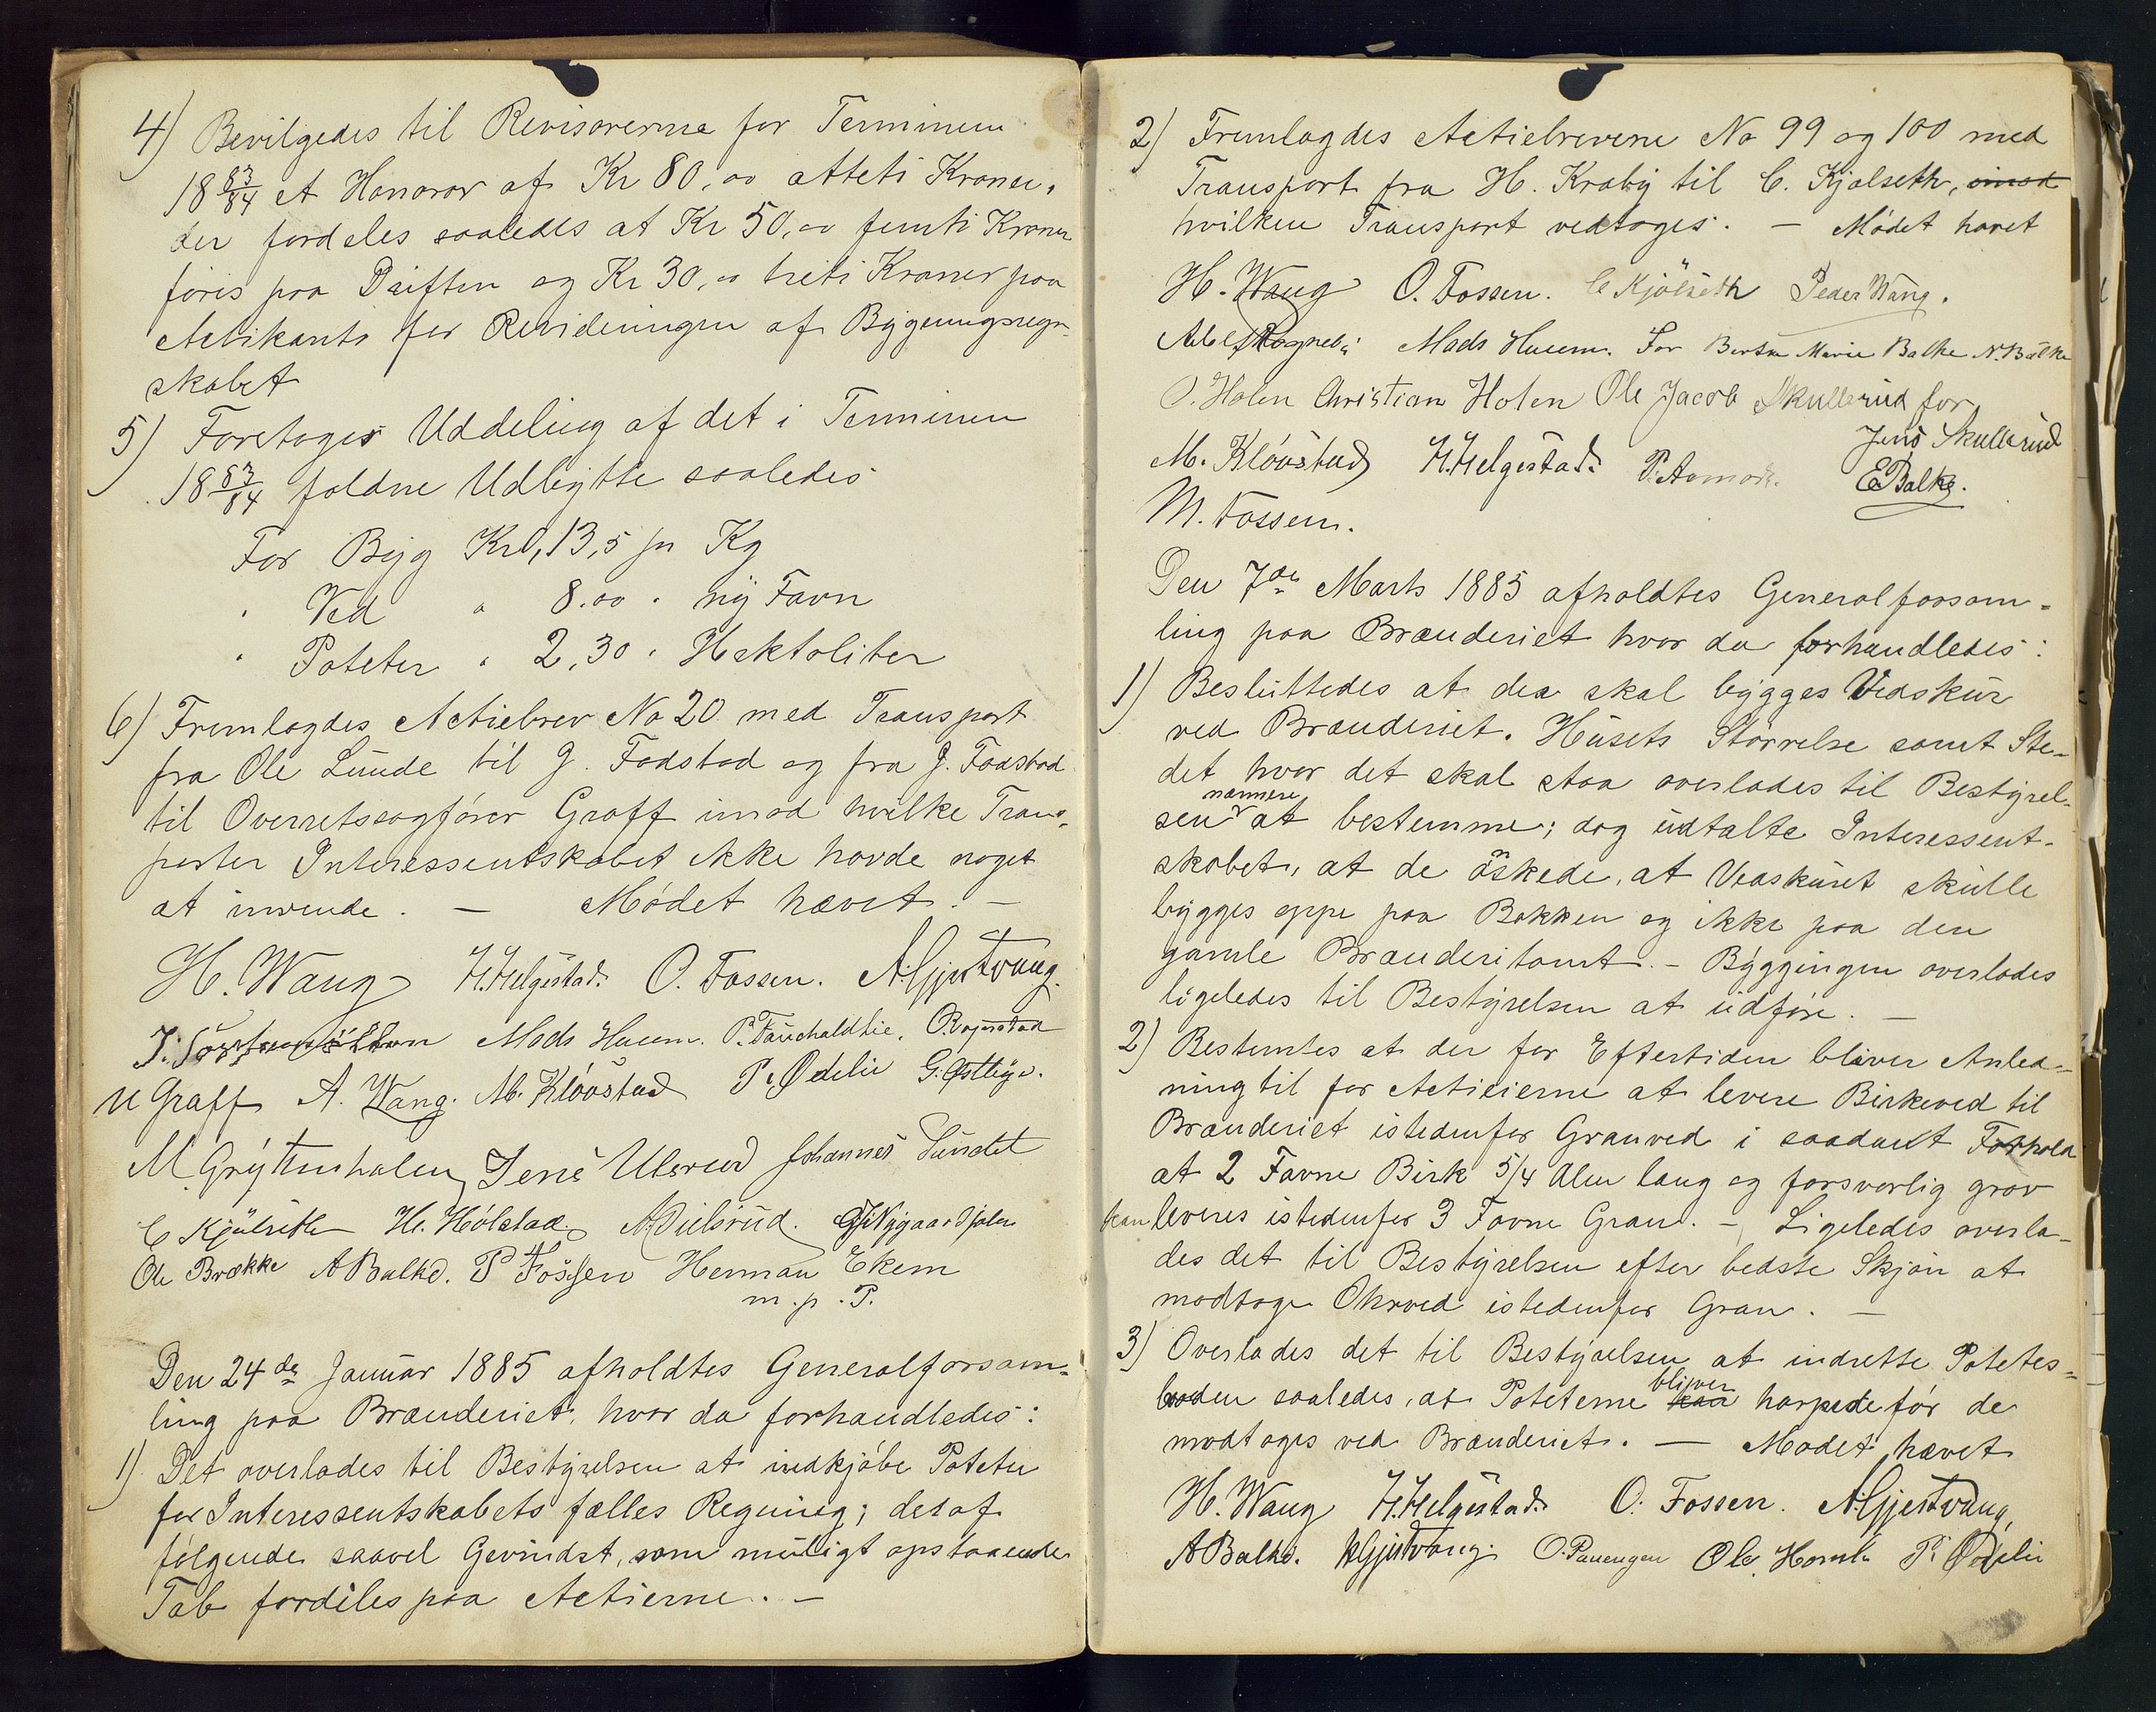 4) Bevilgedes til Revisorerne for Terminen
18 83/84 et Honorar af Kr 80,00 otteti Kroner,
der fordeles saaledes at Kr 50,00 femti Kroner
føres paa Driften og Kr 30,00 treti Kroner paa
Actikonto for Revideringen af Bygningsregn-
skabet
5) Foretoges Uddeling af det i Terminen
18 83/84 faldne Udbytte saaledes
For Byg Kr 0,13,5 pr Kg
" Ved " 8.00 " ny Favn
" Poteter " 2,30 " Hektoliter
6) Fremlagdes Actiebrev No 20 med Transport
fra Ole Lunde til J. Fodstad og fra J. Fodstad
til Overretssagfører Graff imod hvilke Trans-
porter Interessentskabet ikke havde noget
at invende. — Mødet hævet. —
H. Wang H. Helgestad. O. Fossen. A. Gjestvang.
Mads Huem. P. Fauchaldlie.
N Graff A. Wang. M. Kløvstad P. Ødelie G. Østbye.
M. Grÿtenholen Jens Ulsrud Johannes Sundet
C Kjølseth H. Hølstad. A. Dielsrud.
Ole Brække A Balke. P Fossen Herman Ekern
m. p. P.
Den 24de Januar 1885 afholdtes Generalforsam-
ling paa Brænderiet, hvor da forhandledes:
1) Det overlades til Bestyrelsen at indkjøbe Poteter
for Interessentskabets fælles Regning; deraf
følgende saavel Gevindst, som muligt opstaaende
Tab fordeles paa Actierne. —
2) Fremlagdes Actiebrevene No 99 og 100 med
Transport fra H. Kraby til C. Kjølseth, imod
hvilken Transport vedtoges. — Mødet hævet
H. Wang O. Fossen. C Kjølseth Peder Wang.
Mads Huem. For Berthe Marie Balke N. Balke
O. Holen Christian Holen Ole Jacob Skullerud for
Jens Skullerud
M. Kløvstad H. Helgestad. P. Aamodt. E Balke.
M. Fossen.
Den 7de Marts 1885 afholdtes Generalforsam-
ling paa Brænderiet hvor da forhandledes:
1) Besluttedes at der skal bygges Vedskur
ved Brænderiet. Husets Størrelse samt Ste-
det hvor det skal staa overlades til Bestyrel-
sen nærmere at bestemme; dog udtalte Interessent-
skabet, at de ønskede, at Vedskuret skulle
bygges oppe paa Bakken og ikke paa den
gamle Brænderitomt. — Byggingen overlades
ligeledes til Bestyrelsen at udføre. —
2) Bestemtes at der for Eftertiden bliver Anled-
ning til for Actieierne at levere Birkeved til
Brænderiet istedenfor Granved i saadant Forhold
at 2 Favne Birk 5/4 Alen lang og forsvarlig grov
kan leveres istedenfor 3 Favne Gran. — Ligeledes overla-
des det til Bestyrelsen efter bedste Skjøn at
modtage Ohrved istedenfor Gran. —
3) Overlades det til Bestyrelsen at indrette Potetes-
boden saaledes, at Poteterne kan bliver harpede før de
modtages ved Brænderiet. — Mødet hævet
H. Wang H. Helgestad. O. Fossen. A. Gjestvang,
A Balke. K Gjestvang. O. Pavengen Ole Homle P. Ødelie